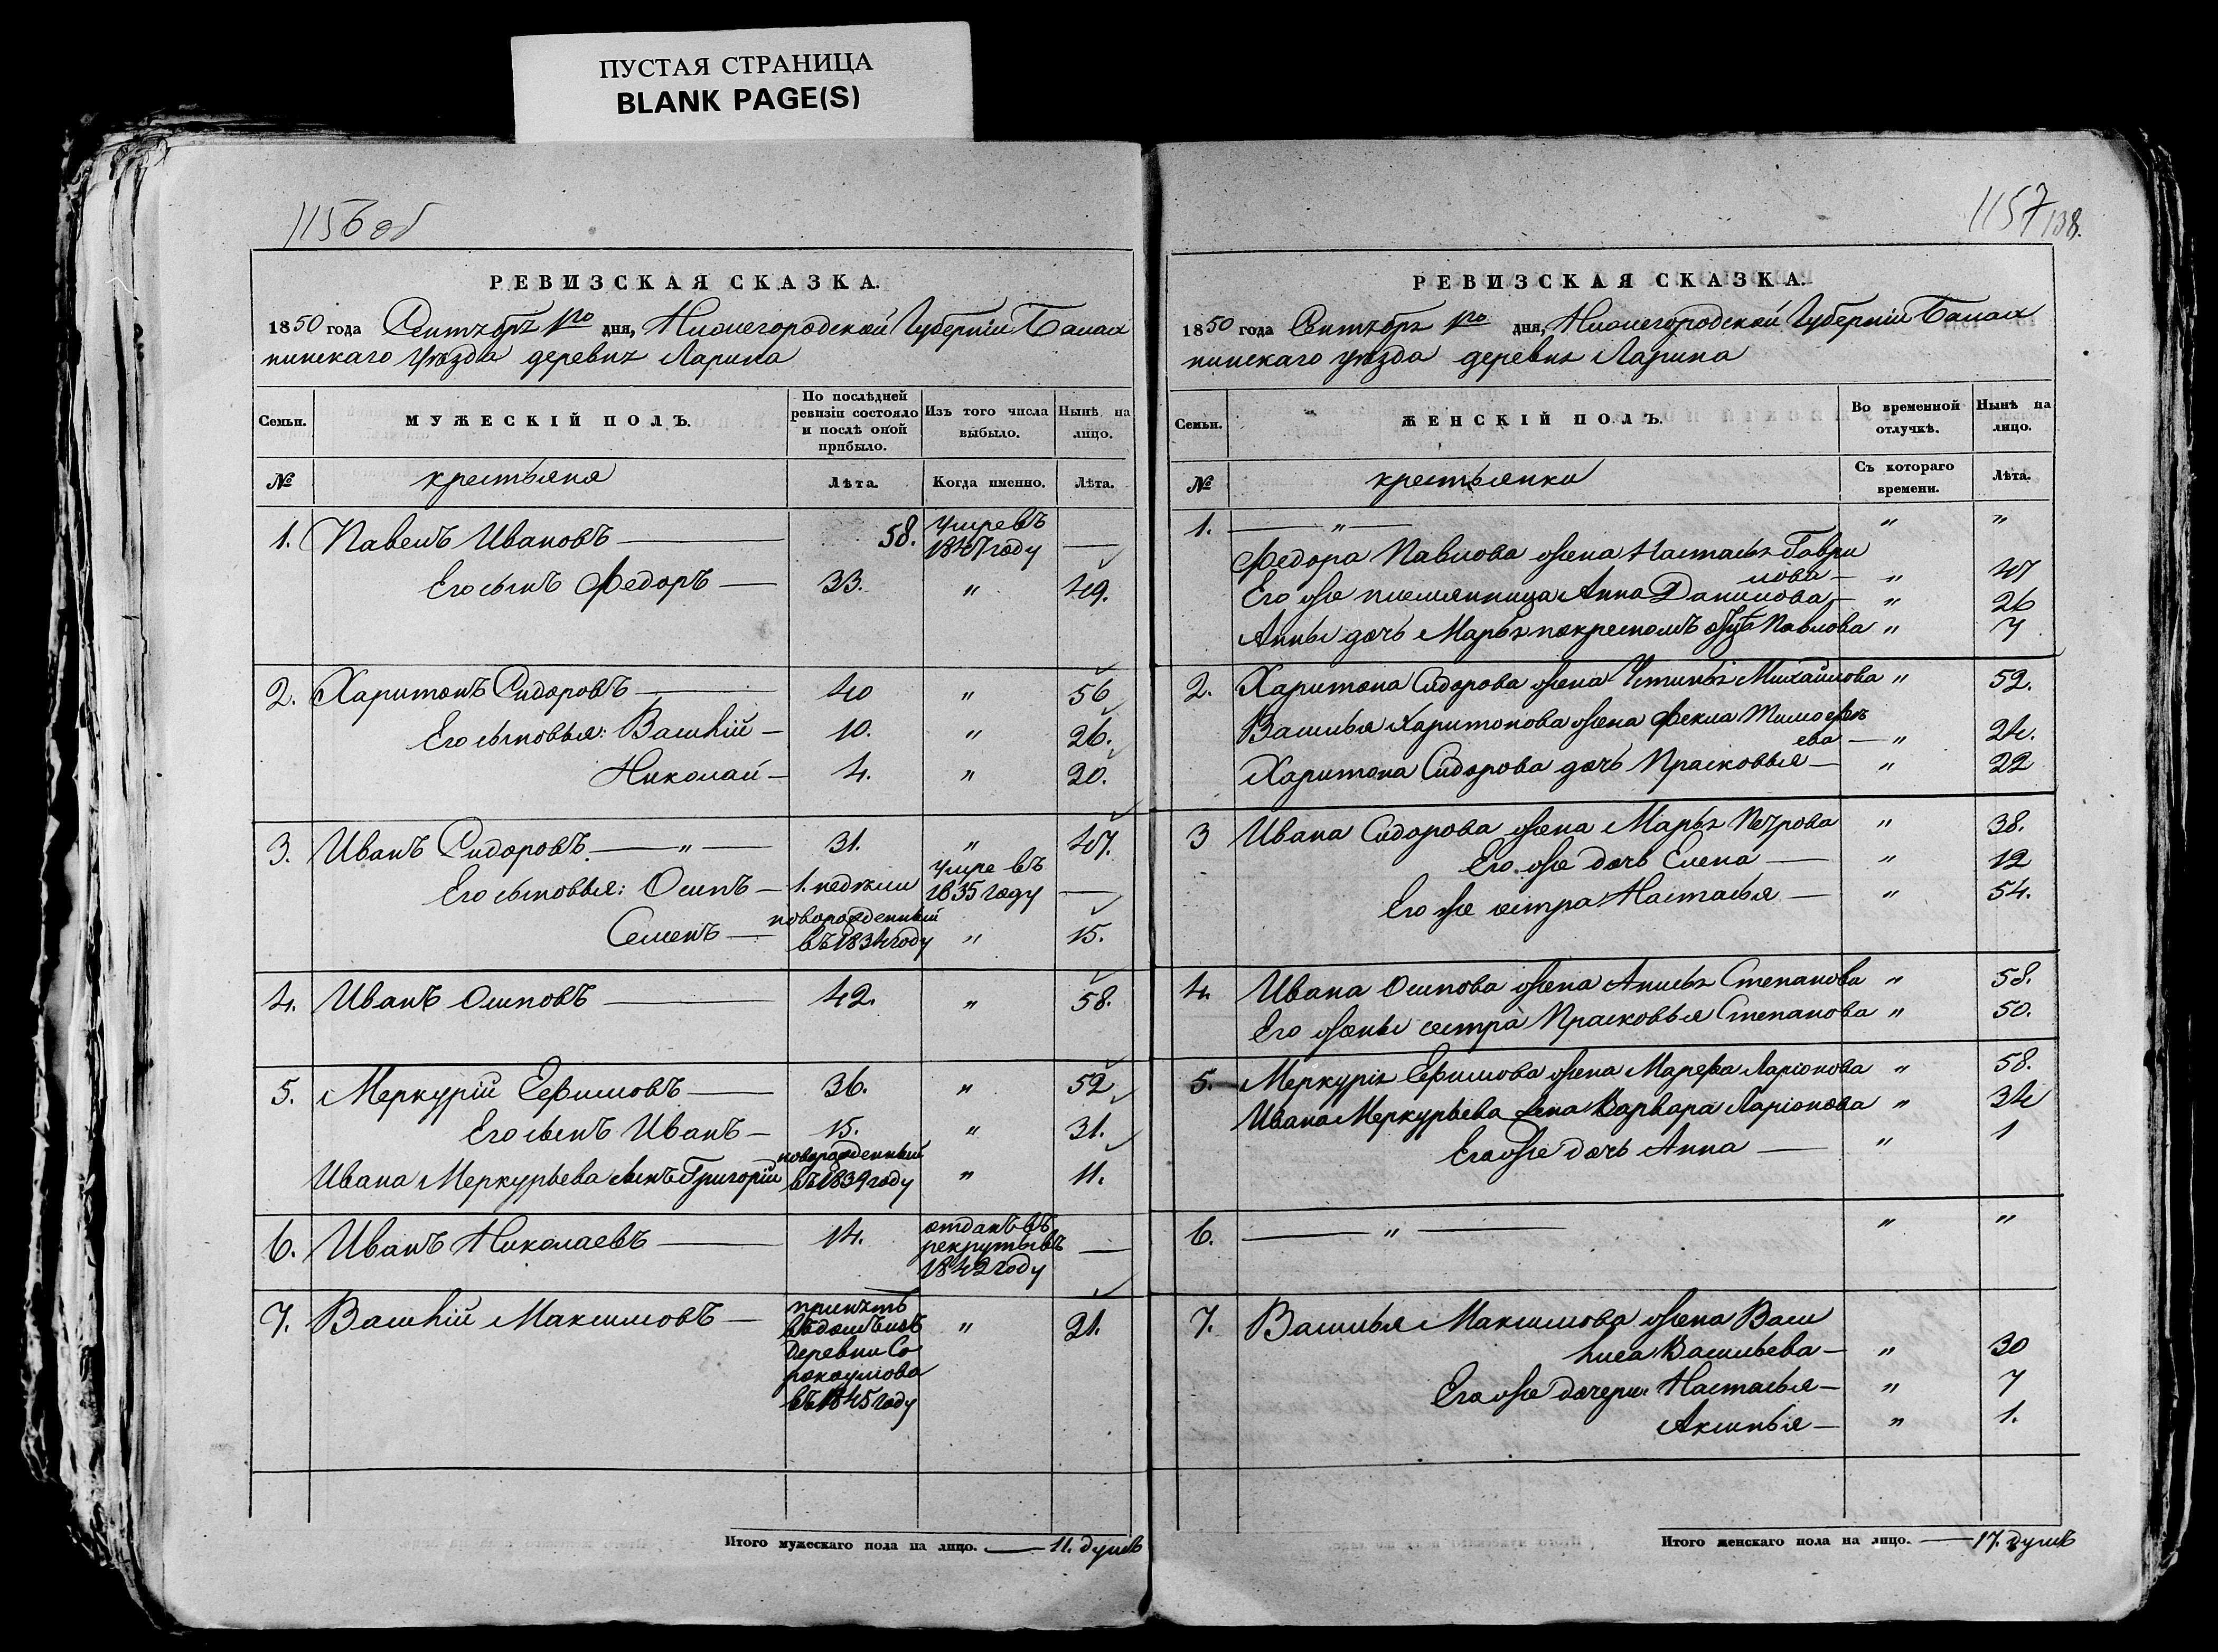 ПУСТАЯ СТРАНИЦА
BLANK PAGE(S)
1156 об
РЕВИЗСКАЯ СКАЗКА.
1850 года Сентября 1го дня, Нижегородской Губерніи Балах
нинскаго Уѣзда деревня Ларина
Семьи. МУЖЕСКІЙ ПОЛЪ. По послѣдней ревизіи состояло и послѣ оной прибыло. Изъ того числа выбыло. Нынѣ на лицо.
№ крестьяня Лѣта. Когда именно. Лѣта.
1. Павелъ Ивановъ — 58. умре въ 1847 году —
Его сынъ Федоръ — 33. " 49.
2. Харитонъ Сидоровъ — 40 " 56
Его сыновья: Василій — 10. " 26.
Николай — 4. " 20.
3. Иванъ Сидоровъ — " — 31. " 47.
Его сыновья: Осипъ — 1. недѣли умре въ 1835 году —
Семенъ — новорожденный въ 1834 году " 15.
4. Иванъ Осиповъ — 42. " 58.
5. Меркурій Ефимовъ — 36. " 52
Его сынъ Иванъ — 15. " 31.
Ивана Меркурьева сынъ Григорій новорожденный въ 1839 году " 11.
6. Иванъ Николаевъ — 14. отданъ въ рекруты въ 1842 году —
7. Василій Максимовъ — принятъ въ домъ изъ деревни Со
рокоумова въ 1845 году " 21.
Итого мужескаго пола на лицо. — 11. душъ
1157 138.
РЕВИЗСКАЯ СКАЗКА.
1850 года Сентября 1го дня, Нижегородской Губерніи Балах
нинскаго уѣзда деревня Ларина
Семьи. ЖЕНСКІЙ ПОЛЪ. Во временной отлучкѣ. Нынѣ на лицо.
№ крестьянки Съ котораго времени. Лѣта.
1. — " — " "
Федора Павлова жена Настасья Гаври
лова — " 47
Его же племянница Анна Данилова — " 26
Анны дочь Марья по крестномъ отцѣ Павлова " 7
2. Харитона Сидорова жена Устинья Михайлова " 52.
Василья Харитонова жена Фекла Тимофе
ева — " 24.
Харитона Сидорова дочь Прасковья — " 22
3 Ивана Сидорова жена Марья Петрова " 38.
Его же дочь Елена — " 12
Его же сестра Настасья — " 54.
4. Ивана Осипова жена Анисья Степанова " 58.
Его жены сестра Прасковья Степанова " 50.
5. Меркурія Ефимова жена Марфа Ларіонова " 58.
Ивана Меркурьева жена Варвара Ларіонова " 34
Его же дочь Анна — " 1
6. — " — " "
7. Василья Максимова жена Васи
лиса Васильева — " 30
Его же дочери: Настасья — " 7
Аксинья — " 1.
Итого женскаго пола на лицо. — 17. душъ